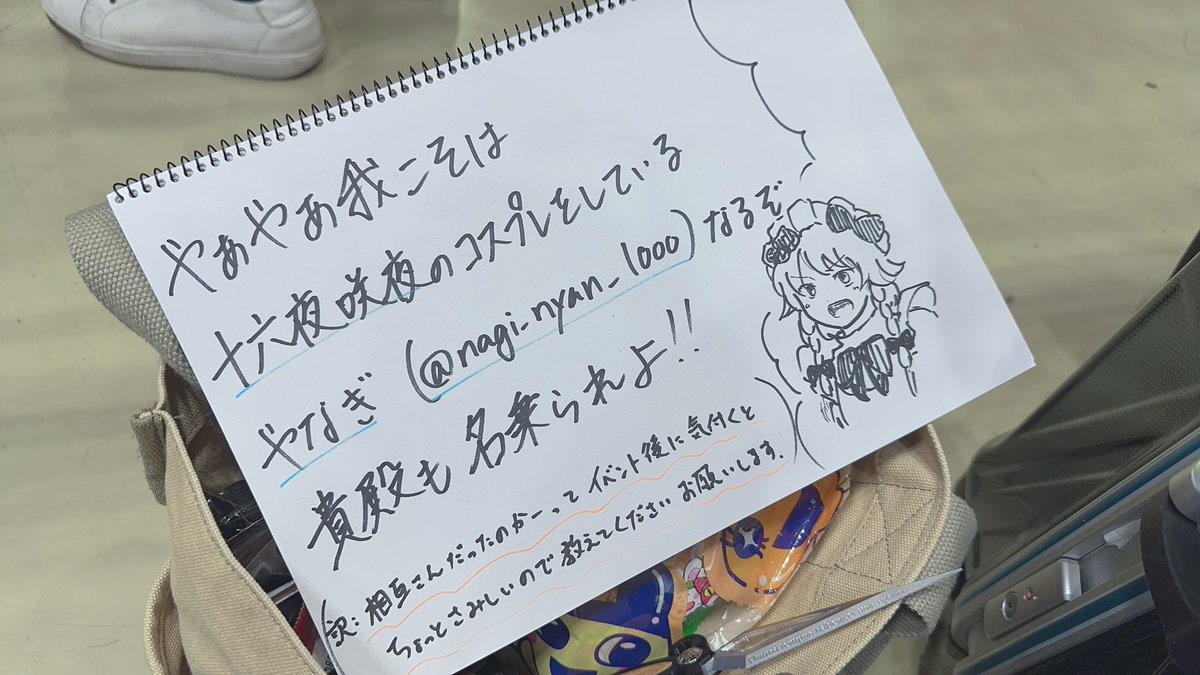 やあやあ我こそは
十六夜咲夜のコスプレをしている
やなぎ (@nagi_nyan_1000) なるぞ
貴殿も名乗られよ!!
(訳:相互さんだったのかーってイベント後に気付くと
ちょっとさみしいので教えてくださいお願いします.